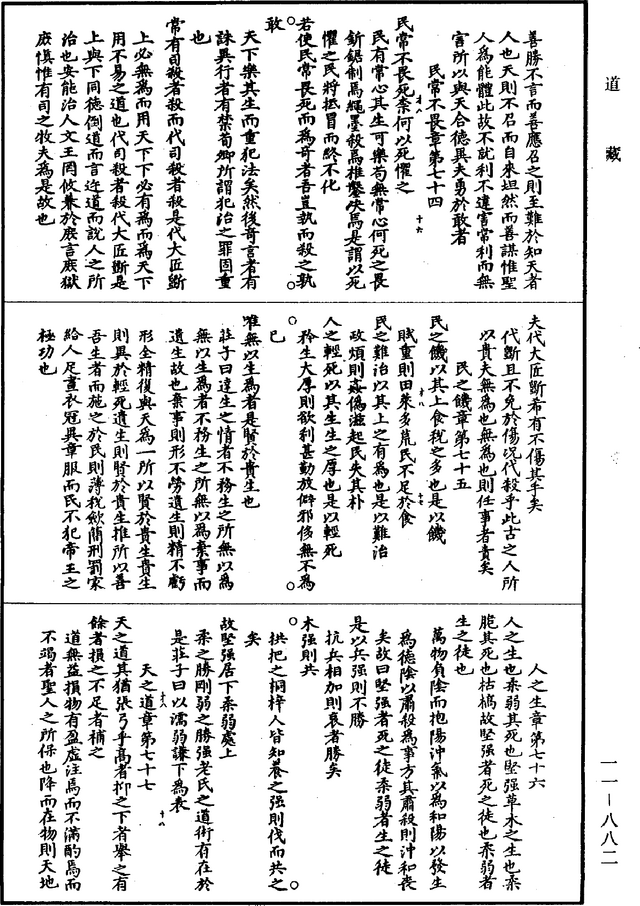 道藏
善勝不言而善應召之則至難於知天者
人也天則不召而自來坦然而善謀惟聖
人為能體此故不就利不違害常利而無
害所以與天合德異夫勇於敢者
民常不畏章第七十四
民常不畏死柰何以死懼之
民有常心其生可樂苟無常心何死之畏
釿鋸制焉繩墨殺焉椎鑿決焉是謂以死
懼之民將抵冒而終不化
若使民常畏死而為奇者吾豈執而殺之孰
敢
天下樂其生而重犯法矣然後奇言者有
誅異行者有禁荀卿所謂犯治之罪固重
也
常有司殺者殺而代司殺者殺是代大匠斲
上必無為而用天下下必有為而為天下
用不易之道也代司殺者殺代大匠斲是
上與下同德倒道而言迕道而說人之所
治也安能治人文王罔攸兼於庶言庶獄
庶慎惟有司之牧夫為是故也
夫代大匠斲希有不傷其手矣
代斲且不免於傷況代殺乎此古之人所
以貴夫無為也無為也則任事者責矣
民之饑章第七十五
民之饑以其上食稅之多也是以饑
賦重則田萊多荒民不足於食
民之難治以其上之有為也是以難治
政煩則姦偽滋起民失其朴
人之輕死以其生生之厚也是以輕死
矜生太厚則欲利甚勤放僻邪侈無不為
已
唯無以生為者是賢於貴生也
莊子曰達生之情者不務生之所無以為
無以生為者不務生之所無以為棄事而
遺生故也棄事則形不勞遺生則精不虧
形全精復與天為一所以賢於貴生貴生
則異於輕死遺生則賢於貴生推所以善
吾生者而施之於民則薄稅斂簡刑罰家
給人足畫衣冠異章服而民不犯帝王之
極功也
人之生章第七十六
人之生也柔弱其死也堅強草木之生也柔
脆其死也枯槁故堅強者死之徒也柔弱者
生之徒也
萬物負陰而抱陽沖氣以為和陽以發生
為德陰以肅殺為事方其肅殺則沖和喪
矣故曰堅強者死之徒柔弱者生之徒
是以兵強則不勝
抗兵相加則哀者勝矣
木強則共
拱把之桐梓人皆知養之強則伐而共之
矣
故堅強居下柔弱處上
柔之勝剛弱之勝強老氏之道術有在於
是莊子曰以濡弱謙下為表
天之道章第七十七
天之道其猶張弓乎高者抑之下者舉之有
餘者損之不足者補之
道無益損物有盈虛注焉而不滿酌焉而
不竭者聖人之所保也降而在物則天地
一一—八八二